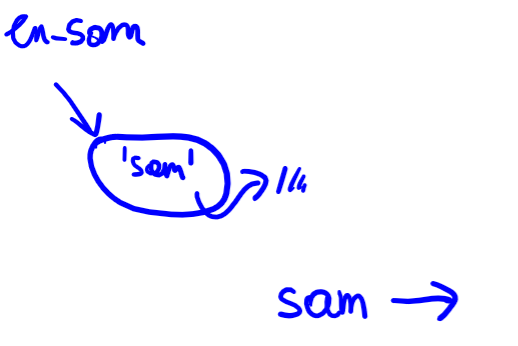 en-sam
'sam'
sam →